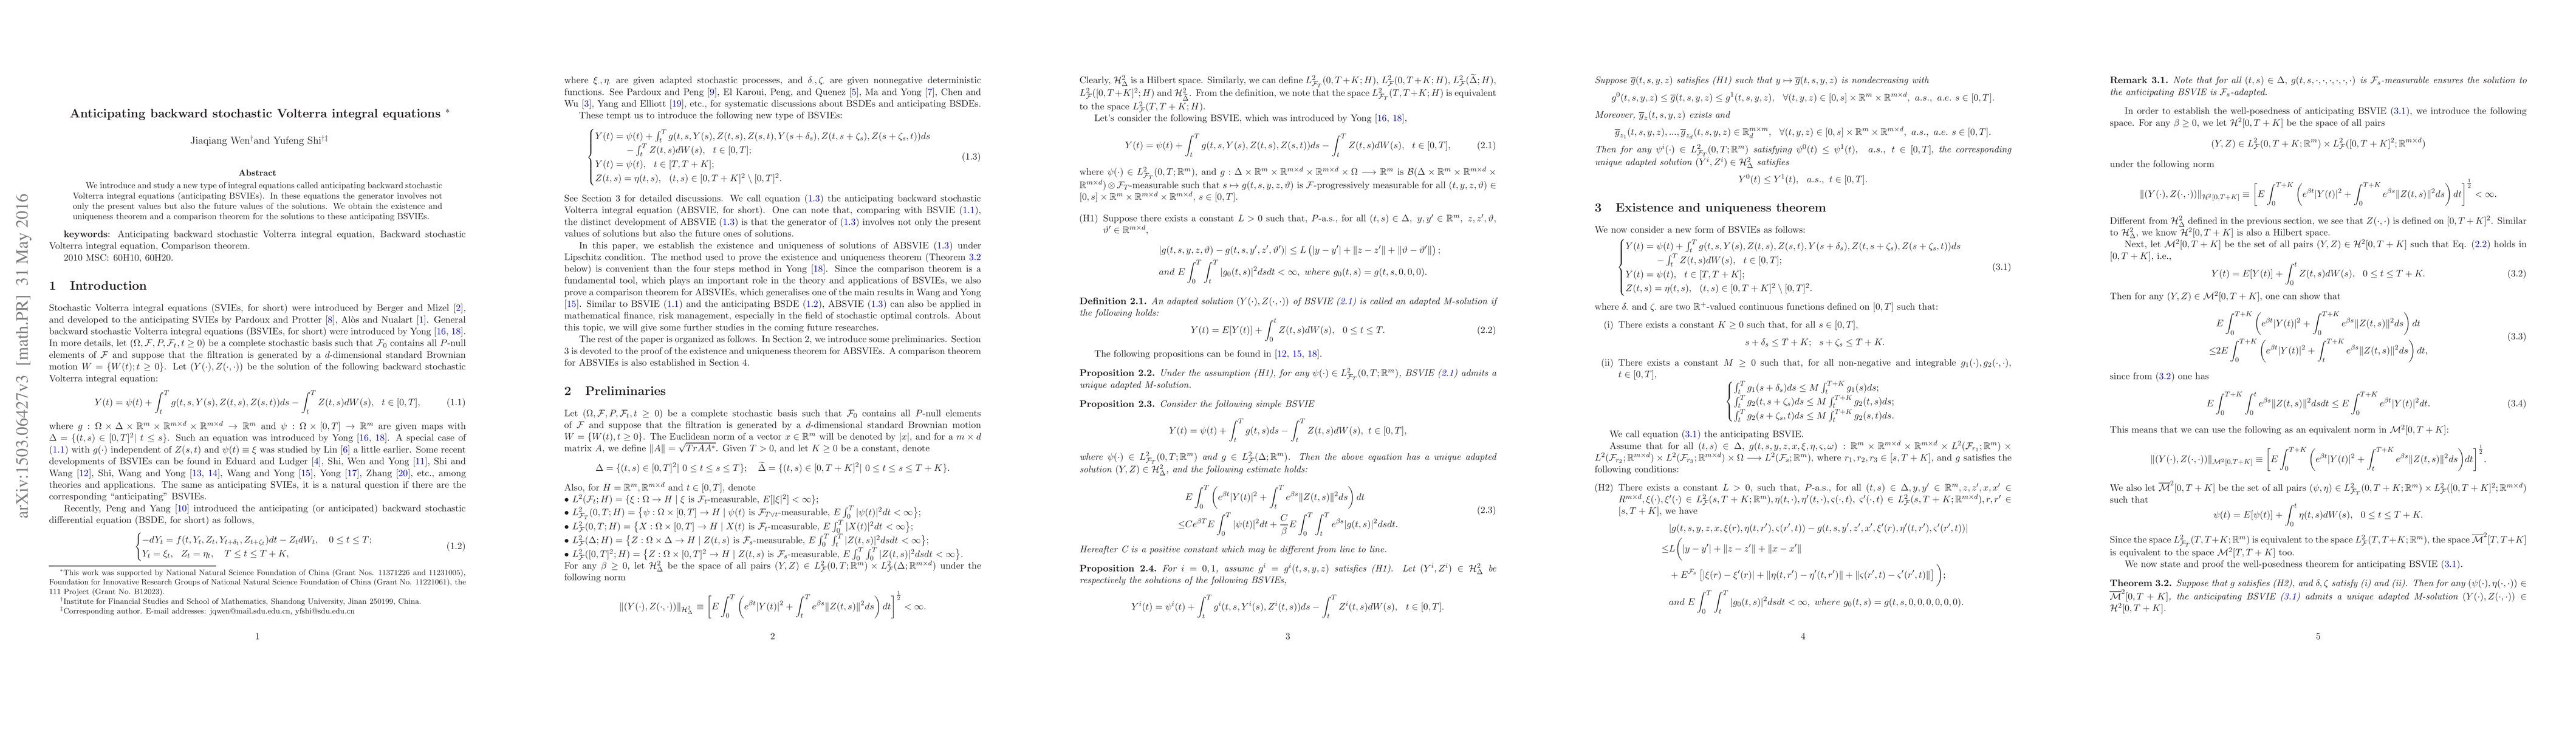 arXiv:1503.06427v3 [math.PR] 31 May 2016
Anticipating backward stochastic Volterra integral equations *
Jiaqiang Wen†and Yufeng Shi†‡
Abstract
We introduce and study a new type of integral equations called anticipating backward stochastic
Volterra integral equations (anticipating BSVIEs). In these equations the generator involves not
only the present values but also the future values of the solutions. We obtain the existence and
uniqueness theorem and a comparison theorem for the solutions to these anticipating BSVIEs.
keywords: Anticipating backward stochastic Volterra integral equation, Backward stochastic
Volterra integral equation, Comparison theorem.
2010 MSC: 60H10, 60H20.
1 Introduction
Stochastic Volterra integral equations (SVIEs, for short) were introduced by Berger and Mizel [2],
and developed to the anticipating SVIEs by Pardoux and Protter [8], Alòs and Nualart [1]. General
backward stochastic Volterra integral equations (BSVIEs, for short) were introduced by Yong [16, 18].
In more details, let (Ω, F, P, F_t, t ≥ 0) be a complete stochastic basis such that F_0 contains all P-null
elements of F and suppose that the filtration is generated by a d-dimensional standard Brownian
motion W = {W(t); t ≥ 0}. Let (Y(·), Z(·,·)) be the solution of the following backward stochastic
Volterra integral equation:
Y(t) = ψ(t) + ∫_t^T g(t, s, Y(s), Z(t, s), Z(s, t))ds − ∫_t^T Z(t, s)dW(s), t ∈ [0, T], (1.1)
where g : Ω × Δ × ℝ^m × ℝ^{m×d} × ℝ^{m×d} → ℝ^m and ψ : Ω × [0, T] → ℝ^m are given maps with
Δ = {(t, s) ∈ [0, T]²| t ≤ s}. Such an equation was introduced by Yong [16, 18]. A special case of
(1.1) with g(·) independent of Z(s, t) and ψ(t) ≡ ξ was studied by Lin [6] a little earlier. Some recent
developments of BSVIEs can be found in Eduard and Ludger [4], Shi, Wen and Yong [11], Shi and
Wang [12], Shi, Wang and Yong [13, 14], Wang and Yong [15], Yong [17], Zhang [20], etc., among
theories and applications. The same as anticipating SVIEs, it is a natural question if there are the
corresponding “anticipating” BSVIEs.
Recently, Peng and Yang [10] introduced the anticipating (or anticipated) backward stochastic
differential equation (BSDE, for short) as follows,
{ −dY_t = f(t, Y_t, Z_t, Y_{t+δ_t}, Z_{t+ζ_t})dt − Z_t dW_t, 0 ≤ t ≤ T;
Y_t = ξ_t, Z_t = η_t, T ≤ t ≤ T + K, (1.2)
*This work was supported by National Natural Science Foundation of China (Grant Nos. 11371226 and 11231005),
Foundation for Innovative Research Groups of National Natural Science Foundation of China (Grant No. 11221061), the
111 Project (Grant No. B12023).
†Institute for Financial Studies and School of Mathematics, Shandong University, Jinan 250199, China.
‡Corresponding author. E-mail addresses: jqwen@mail.sdu.edu.cn, yfshi@sdu.edu.cn
1
where ξ., η. are given adapted stochastic processes, and δ., ζ. are given nonnegative deterministic
functions. See Pardoux and Peng [9], El Karoui, Peng, and Quenez [5], Ma and Yong [7], Chen and
Wu [3], Yang and Elliott [19], etc., for systematic discussions about BSDEs and anticipating BSDEs.
These tempt us to introduce the following new type of BSVIEs:
{ Y(t) = ψ(t) + ∫_t^T g(t, s, Y(s), Z(t, s), Z(s, t), Y(s + δ_s), Z(t, s + ζ_s), Z(s + ζ_s, t))ds
− ∫_t^T Z(t, s)dW(s), t ∈ [0, T];
Y(t) = ψ(t), t ∈ [T, T + K];
Z(t, s) = η(t, s), (t, s) ∈ [0, T + K]² \ [0, T]². (1.3)
See Section 3 for detailed discussions. We call equation (1.3) the anticipating backward stochastic
Volterra integral equation (ABSVIE, for short). One can note that, comparing with BSVIE (1.1),
the distinct development of ABSVIE (1.3) is that the generator of (1.3) involves not only the present
values of solutions but also the future ones of solutions.
In this paper, we establish the existence and uniqueness of solutions of ABSVIE (1.3) under
Lipschitz condition. The method used to prove the existence and uniqueness theorem (Theorem 3.2
below) is convenient than the four steps method in Yong [18]. Since the comparison theorem is a
fundamental tool, which plays an important role in the theory and applications of BSVIEs, we also
prove a comparison theorem for ABSVIEs, which generalises one of the main results in Wang and Yong
[15]. Similar to BSVIE (1.1) and the anticipating BSDE (1.2), ABSVIE (1.3) can also be applied in
mathematical finance, risk management, especially in the field of stochastic optimal controls. About
this topic, we will give some further studies in the coming future researches.
The rest of the paper is organized as follows. In Section 2, we introduce some preliminaries. Section
3 is devoted to the proof of the existence and uniqueness theorem for ABSVIEs. A comparison theorem
for ABSVIEs is also established in Section 4.
2 Preliminaries
Let (Ω, F, P, F_t, t ≥ 0) be a complete stochastic basis such that F_0 contains all P-null elements
of F and suppose that the filtration is generated by a d-dimensional standard Brownian motion
W = {W(t), t ≥ 0}. The Euclidean norm of a vector x ∈ ℝ^m will be denoted by |x|, and for a m × d
matrix A, we define ‖A‖ = √TrAA*. Given T > 0, and let K ≥ 0 be a constant, denote
Δ = {(t, s) ∈ [0, T]²| 0 ≤ t ≤ s ≤ T}; Δ̃ = {(t, s) ∈ [0, T + K]²| 0 ≤ t ≤ s ≤ T + K}.
Also, for H = ℝ^m, ℝ^{m×d} and t ∈ [0, T], denote
• L²(F_t; H) = {ξ : Ω → H | ξ is F_t-measurable, E[|ξ|²] < ∞};
• L²_{F_T}(0, T; H) = {ψ : Ω × [0, T] → H | ψ(t) is F_{T∨t}-measurable, E ∫_0^T |ψ(t)|²dt < ∞};
• L²_F(0, T; H) = {X : Ω × [0, T] → H | X(t) is F_t-measurable, E ∫_0^T |X(t)|²dt < ∞};
• L²_F(Δ; H) = {Z : Ω × Δ → H | Z(t, s) is F_s-measurable, E ∫_0^T ∫_t^T |Z(t, s)|²dsdt < ∞};
• L²_F([0, T]²; H) = {Z : Ω × [0, T]² → H | Z(t, s) is F_s-measurable, E ∫_0^T ∫_0^T |Z(t, s)|²dsdt < ∞}.
For any β ≥ 0, let H²_Δ be the space of all pairs (Y, Z) ∈ L²_F(0, T; ℝ^m) × L²_F(Δ; ℝ^{m×d}) under the
following norm
‖(Y(·), Z(·,·))‖_{H²_Δ} ≡ [E ∫_0^T (e^{βt}|Y(t)|² + ∫_t^T e^{βs}‖Z(t, s)‖²ds) dt]^{1/2} < ∞.
2
Clearly, H²_Δ is a Hilbert space. Similarly, we can define L²_{F_T}(0, T+K; H), L²_F(0, T+K; H), L²_F(Δ̃; H),
L²_F([0, T+K]²; H) and H²_Δ̃. From the definition, we note that the space L²_{F_T}(T, T+K; H) is equivalent
to the space L²_F(T, T + K; H).
Let's consider the following BSVIE, which was introduced by Yong [16, 18],
Y(t) = ψ(t) + ∫_t^T g(t, s, Y(s), Z(t, s), Z(s, t))ds − ∫_t^T Z(t, s)dW(s), t ∈ [0, T], (2.1)
where ψ(·) ∈ L²_{F_T}(0, T; ℝ^m), and g : Δ × ℝ^m × ℝ^{m×d} × ℝ^{m×d} × Ω ⟶ ℝ^m is B(Δ × ℝ^m × ℝ^{m×d} ×
ℝ^{m×d}) ⊗ F_T-measurable such that s ↦ g(t, s, y, z, ϑ) is F-progressively measurable for all (t, y, z, ϑ) ∈
[0, s] × ℝ^m × ℝ^{m×d} × ℝ^{m×d}, s ∈ [0, T].
(H1) Suppose there exists a constant L > 0 such that, P-a.s., for all (t, s) ∈ Δ, y, y′ ∈ ℝ^m, z, z′, ϑ,
ϑ′ ∈ ℝ^{m×d},
|g(t, s, y, z, ϑ) − g(t, s, y′, z′, ϑ′)| ≤ L (|y − y′| + ‖z − z′‖ + ‖ϑ − ϑ′‖) ;
and E ∫_0^T ∫_t^T |g_0(t, s)|²dsdt < ∞, where g_0(t, s) = g(t, s, 0, 0, 0).
Definition 2.1. An adapted solution (Y(·), Z(·,·)) of BSVIE (2.1) is called an adapted M-solution if
the following holds:
Y(t) = E[Y(t)] + ∫_0^t Z(t, s)dW(s), 0 ≤ t ≤ T. (2.2)
The following propositions can be found in [12, 15, 18].
Proposition 2.2. Under the assumption (H1), for any ψ(·) ∈ L²_{F_T}(0, T; ℝ^m), BSVIE (2.1) admits a
unique adapted M-solution.
Proposition 2.3. Consider the following simple BSVIE
Y(t) = ψ(t) + ∫_t^T g(t, s)ds − ∫_t^T Z(t, s)dW(s), t ∈ [0, T],
where ψ(·) ∈ L²_{F_T}(0, T; ℝ^m) and g ∈ L²_F(Δ; ℝ^m). Then the above equation has a unique adapted
solution (Y, Z) ∈ H²_Δ, and the following estimate holds:
E ∫_0^T (e^{βt}|Y(t)|² + ∫_t^T e^{βs}‖Z(t, s)‖²ds) dt
≤Ce^{βT}E ∫_0^T |ψ(t)|²dt + C/β E ∫_0^T ∫_t^T e^{βs}|g(t, s)|²dsdt. (2.3)
Hereafter C is a positive constant which may be different from line to line.
Proposition 2.4. For i = 0, 1, assume g^i = g^i(t, s, y, z) satisfies (H1). Let (Y^i, Z^i) ∈ H²_Δ be
respectively the solutions of the following BSVIEs,
Y^i(t) = ψ^i(t) + ∫_t^T g^i(t, s, Y^i(s), Z^i(t, s))ds − ∫_t^T Z^i(t, s)dW(s), t ∈ [0, T].
3
Suppose g̅(t, s, y, z) satisfies (H1) such that y ↦ g̅(t, s, y, z) is nondecreasing with
g⁰(t, s, y, z) ≤ g̅(t, s, y, z) ≤ g¹(t, s, y, z), ∀(t, y, z) ∈ [0, s] × ℝ^m × ℝ^{m×d}, a.s., a.e. s ∈ [0, T].
Moreover, g̅_z(t, s, y, z) exists and
g̅_{z_1}(t, s, y, z), ..., g̅_{z_d}(t, s, y, z) ∈ ℝ_d^{m×m}, ∀(t, y, z) ∈ [0, s] × ℝ^m × ℝ^{m×d}, a.s., a.e. s ∈ [0, T].
Then for any ψ^i(·) ∈ L²_{F_T}(0, T; ℝ^m) satisfying ψ⁰(t) ≤ ψ¹(t), a.s., t ∈ [0, T], the corresponding
unique adapted solution (Y^i, Z^i) ∈ H²_Δ satisfies
Y⁰(t) ≤ Y¹(t), a.s., t ∈ [0, T].
3 Existence and uniqueness theorem
We now consider a new form of BSVIEs as follows:
{ Y(t) = ψ(t) + ∫_t^T g(t, s, Y(s), Z(t, s), Z(s, t), Y(s + δ_s), Z(t, s + ζ_s), Z(s + ζ_s, t))ds
− ∫_t^T Z(t, s)dW(s), t ∈ [0, T];
Y(t) = ψ(t), t ∈ [T, T + K];
Z(t, s) = η(t, s), (t, s) ∈ [0, T + K]² \ [0, T]². (3.1)
where δ. and ζ. are two ℝ⁺-valued continuous functions defined on [0, T] such that:
(i) There exists a constant K ≥ 0 such that, for all s ∈ [0, T],
s + δ_s ≤ T + K; s + ζ_s ≤ T + K.
(ii) There exists a constant M ≥ 0 such that, for all non-negative and integrable g_1(·), g_2(·,·),
t ∈ [0, T],
{ ∫_t^T g_1(s + δ_s)ds ≤ M ∫_t^{T+K} g_1(s)ds;
∫_t^T g_2(t, s + ζ_s)ds ≤ M ∫_t^{T+K} g_2(t, s)ds;
∫_t^T g_2(s + ζ_s, t)ds ≤ M ∫_t^{T+K} g_2(s, t)ds.
We call equation (3.1) the anticipating BSVIE.
Assume that for all (t, s) ∈ Δ, g(t, s, y, z, x, ξ, η, ς, ω) : ℝ^m × ℝ^{m×d} × ℝ^{m×d} × L²(F_{r_1}; ℝ^m) ×
L²(F_{r_2}; ℝ^{m×d}) × L²(F_{r_3}; ℝ^{m×d}) × Ω ⟶ L²(F_s; ℝ^m), where r_1, r_2, r_3 ∈ [s, T + K], and g satisfies the
following conditions:
(H2) There exists a constant L > 0, such that, P-a.s., for all (t, s) ∈ Δ, y, y′ ∈ ℝ^m, z, z′, x, x′ ∈
R^{m×d}, ξ(·), ξ′(·) ∈ L²_F(s, T + K; ℝ^m), η(t, ·), η′(t, ·), ς(·, t), ς′(·, t) ∈ L²_F(s, T + K; ℝ^{m×d}), r, r′ ∈
[s, T + K], we have
|g(t, s, y, z, x, ξ(r), η(t, r′), ς(r′, t)) − g(t, s, y′, z′, x′, ξ′(r), η′(t, r′), ς′(r′, t))|
≤L(|y − y′| + ‖z − z′‖ + ‖x − x′‖
+ E^{F_s} [|ξ(r) − ξ′(r)| + ‖η(t, r′) − η′(t, r′)‖ + ‖ς(r′, t) − ς′(r′, t)‖] );
and E ∫_0^T ∫_t^T |g_0(t, s)|²dsdt < ∞, where g_0(t, s) = g(t, s, 0, 0, 0, 0, 0, 0).
4
Remark 3.1. Note that for all (t, s) ∈ Δ, g(t, s, ·, ·, ·, ·, ·, ·) is F_s-measurable ensures the solution to
the anticipating BSVIE is F_s-adapted.
In order to establish the well-posedness of anticipating BSVIE (3.1), we introduce the following
space. For any β ≥ 0, we let H²[0, T + K] be the space of all pairs
(Y, Z) ∈ L²_F(0, T + K; ℝ^m) × L²_F([0, T + K]²; ℝ^{m×d})
under the following norm
‖(Y(·), Z(·,·))‖_{H²[0,T+K]} ≡ [E ∫_0^{T+K} (e^{βt}|Y(t)|² + ∫_0^{T+K} e^{βs}‖Z(t, s)‖²ds) dt]^{1/2} < ∞.
Different from H²_Δ defined in the previous section, we see that Z(·,·) is defined on [0, T + K]². Similar
to H²_Δ, we know H²[0, T + K] is also a Hilbert space.
Next, let M²[0, T + K] be the set of all pairs (Y, Z) ∈ H²[0, T + K] such that Eq. (2.2) holds in
[0, T + K], i.e.,
Y(t) = E[Y(t)] + ∫_0^t Z(t, s)dW(s), 0 ≤ t ≤ T + K. (3.2)
Then for any (Y, Z) ∈ M²[0, T + K], one can show that
E ∫_0^{T+K} (e^{βt}|Y(t)|² + ∫_0^{T+K} e^{βs}‖Z(t, s)‖²ds) dt
≤2E ∫_0^{T+K} (e^{βt}|Y(t)|² + ∫_t^{T+K} e^{βs}‖Z(t, s)‖²ds) dt, (3.3)
since from (3.2) one has
E ∫_0^{T+K} ∫_0^t e^{βs}‖Z(t, s)‖²dsdt ≤ E ∫_0^{T+K} e^{βt}|Y(t)|²dt. (3.4)
This means that we can use the following as an equivalent norm in M²[0, T + K]:
‖(Y(·), Z(·,·))‖_{M²[0,T+K]} ≡ [E ∫_0^{T+K} (e^{βt}|Y(t)|² + ∫_t^{T+K} e^{βs}‖Z(t, s)‖²ds) dt]^{1/2}.
We also let M̅²[0, T + K] be the set of all pairs (ψ, η) ∈ L²_{F_T}(0, T + K; ℝ^m) × L²_F([0, T + K]²; ℝ^{m×d})
such that
ψ(t) = E[ψ(t)] + ∫_0^t η(t, s)dW(s), 0 ≤ t ≤ T + K.
Since the space L²_{F_T}(T, T+K; ℝ^m) is equivalent to the space L²_F(T, T+K; ℝ^m), the space M̅²[T, T+K]
is equivalent to the space M²[T, T + K] too.
We now state and proof the well-posedness theorem for anticipating BSVIE (3.1).
Theorem 3.2. Suppose that g satisfies (H2), and δ, ζ satisfy (i) and (ii). Then for any (ψ(·), η(·,·)) ∈
M̅²[0, T + K], the anticipating BSVIE (3.1) admits a unique adapted M-solution (Y(·), Z(·,·)) ∈
H²[0, T + K].
5